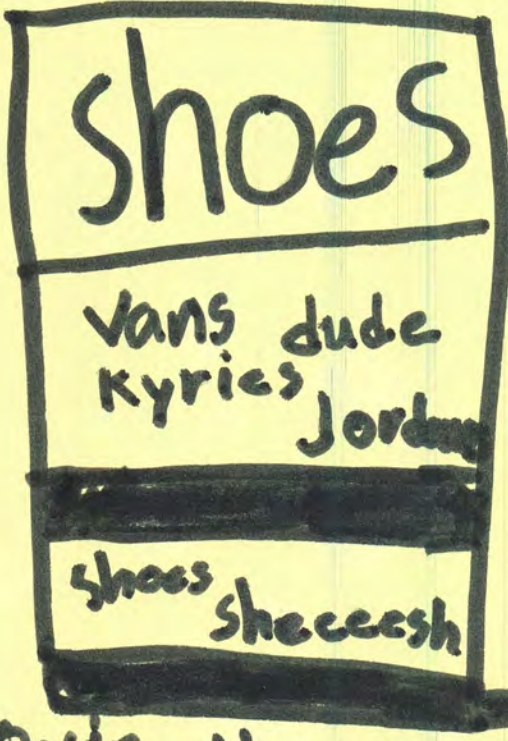 shoes
vans dude
Kyries
Jordans
shoes
sheeeesh